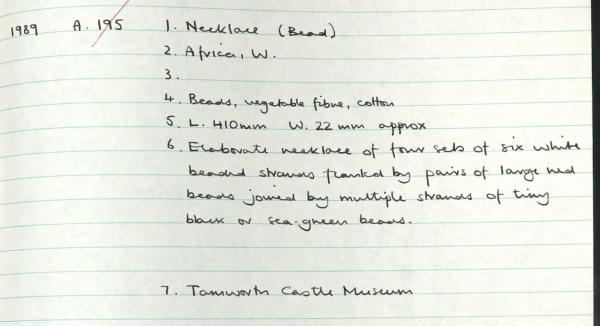 1989 A. 195 1. Necklace (Bead)
2. Africa, W.
3.
4. Beads, vegetable fibre, cotton
5. L. 410mm W. 22 mm approx
6. Elaborate necklace of four sets of six white
beaded strands flanked by pairs of large red
beads joined by multiple strands of tiny
black or sea-green beads.
7. Tamworth Castle Museum